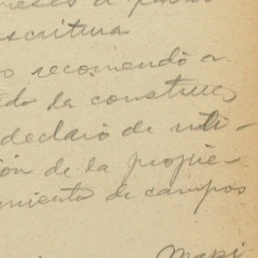 escritura
recomendó a
do da construc
declaró de uti-
ión de la propie
miento de campos